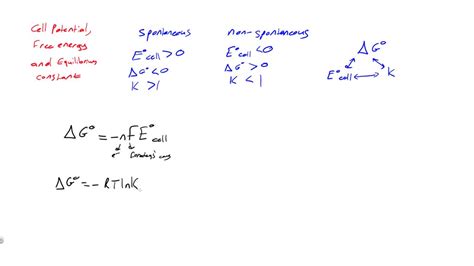 Cell Potential,
Free energy
and Equilibrium
constants
spontaneous
E°cell > 0
ΔG° < 0
K > 1
non-spontaneous
E°cell < 0
ΔG° > 0
K < 1
ΔG°
E°cell ⟷ K
ΔG° = -nFE°cell
e⁻ Faraday's cons
ΔG° = -RTlnK